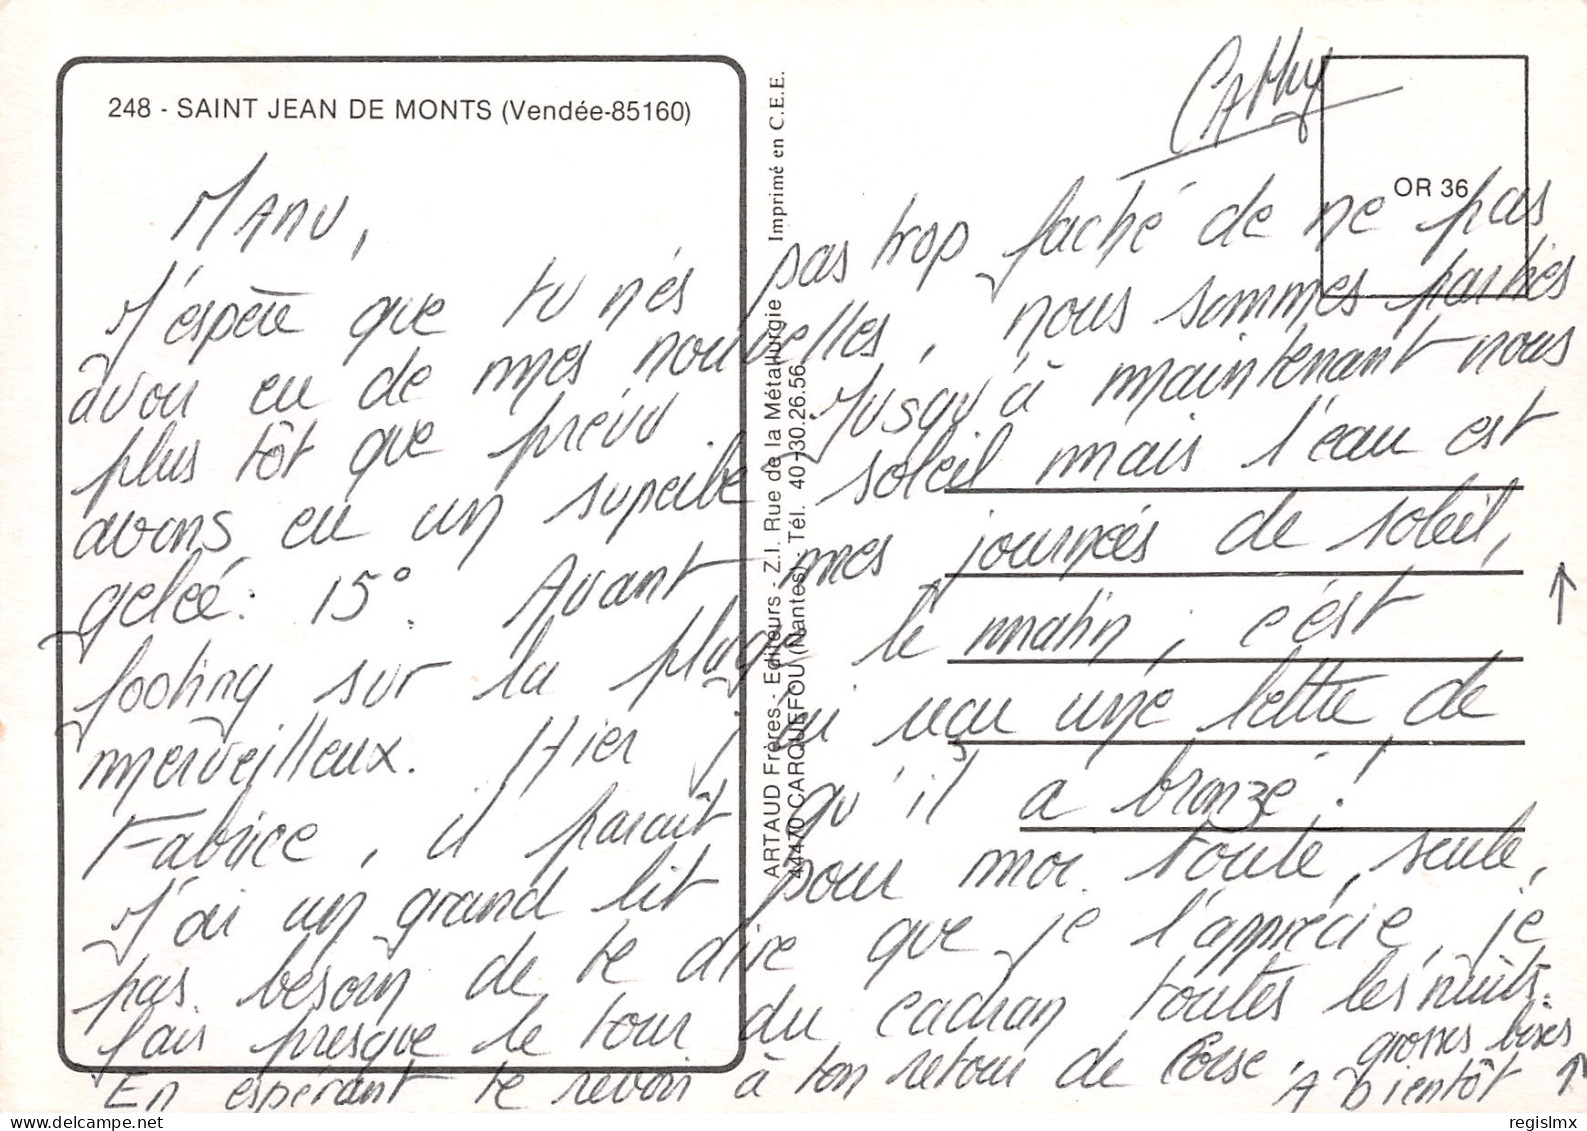 248 - SAINT JEAN DE MONTS (Vendée-85160)
CAthy
OR 36
MAnu,
J'espère que tu n'és pas trop faché de ne pas
avoir eu de mes nouvelles, nous sommes parties
plus tôt que prévu. Jusqu'à maintenant nous
avons eu un superbe soleil mais l'eau est
gelée : 15°. Avant mes journées de soleil,
footing sur la plage le matin ; c'ést
merveilleux. Hier j'ai reçu une lettre de
Fabrice, il paraît qu'il a bronzé !
J'ai un grand lit pour moi toute seule,
pas besoin de te dire que je l'apprécie, je
fais presque le tour du cadran toutes les nuits.
En espérant te revoir à ton retour de Corse, grosses bises
A bientôt
ARTAUD Frères - Editeurs - Z.I. Rue de la Métallurgie Imprimé en C.E.E.
44470 CARQUEFOU (Nantes) - Tél. 40-30.26.56
regislmx